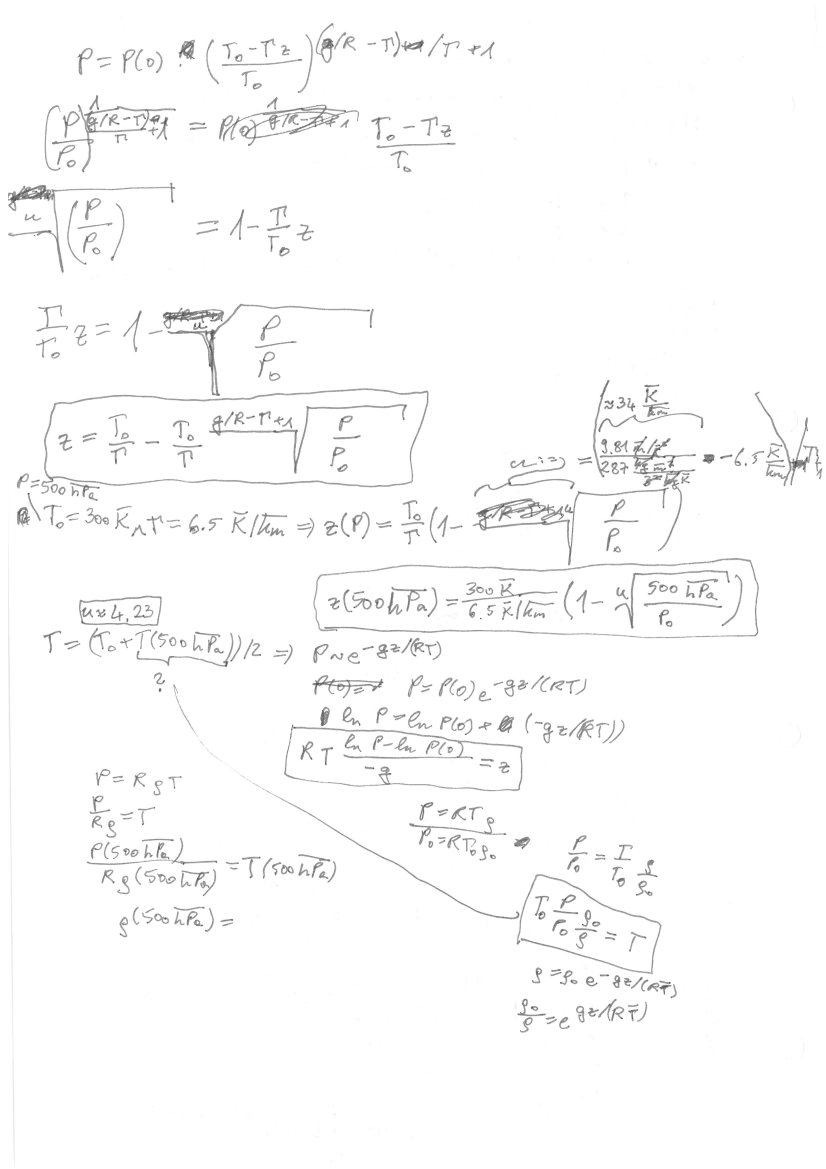 P = P(0) · ((T₀ − Γz)/T₀)^((g/R − Γ)/Γ + 1)
(P/P₀)^(1/((g/R − Γ)/Γ + 1)) = (T₀ − Γz)/T₀
ᵘ√(P/P₀) = 1 − Γ/T₀ z
Γ/T₀ z = 1 − ᵘ√(P/P₀)
≈ 34 K/km
z = T₀/Γ − T₀/Γ ^(g/R − Γ + 1)√(P/P₀)
u := = (9.81 m/s² / 287 − 6.5 K/km)
P = 500 hPa
T₀ = 300 K ∧ Γ = 6.5 K/km ⇒ z(P) = T₀/Γ (1 − ᵘ√(P/P₀))
z(500 hPa) = 300 K/6.5 K/km (1 − ᵘ√(500 hPa/P₀))
u ≈ 4,23
T = (T₀ + T(500 hPa))/2 ⇒ P ~ e^(−gz/(RT))
?
P = P(0) e^(−gz/(RT))
ln P = ln P(0) + (−gz/(RT))
RT (ln P − ln P(0))/(−g) = z
P = RρT
P/(Rρ) = T
P(500 hPa)/(Rρ(500 hPa)) = T(500 hPa)
ρ(500 hPa) =
P = RTρ
P₀ = RT₀ρ₀
P/P₀ = T/T₀ ρ/ρ₀
T₀ P/P₀ ρ₀/ρ = T
ρ = ρ₀ e^(−gz/(RT̄))
ρ₀/ρ = e^(gz/(RT̄))